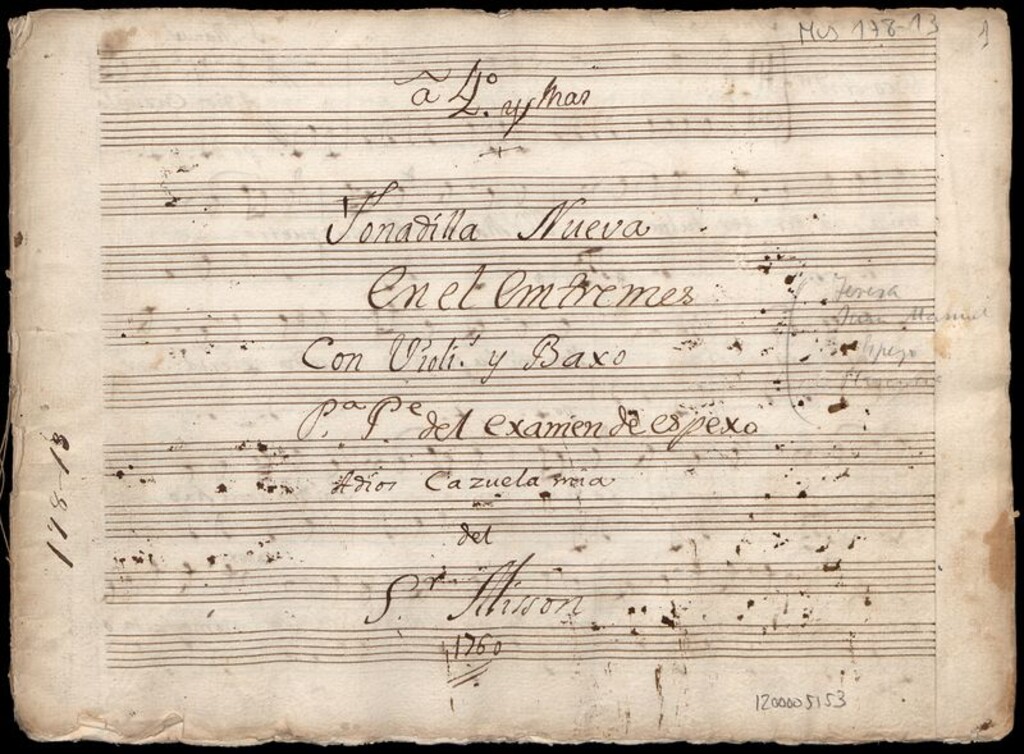 Mus 178-13
1
â 4.º y Mas
Tonadilla Nueva
En el Emtremes
Con Violi.ˢ y Baxo
P.ª P.ᵉ del examen de espexo
Adios Cazuela mia
del
S.ʳ Misson
1760
Teresa
Juan Manuel
178-13
1200005153